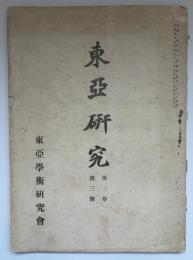 東亞硏究
第三卷
第三號
東亞學術硏究會